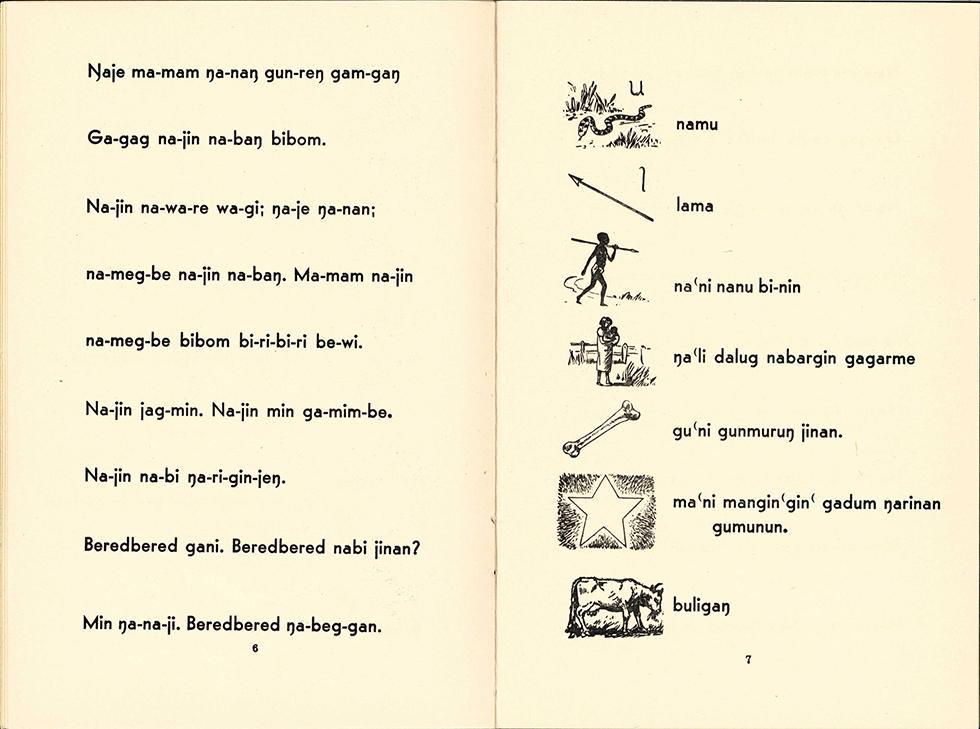 Ŋaje ma-mam ŋa-naŋ gun-reŋ gam-gaŋ
Ga-gag na-jin na-baŋ bibom.
Na-jin na-wa-re wa-gi; ŋa-je ŋa-nan;
na-meg-be na-jin na-baŋ. Ma-mam na-jin
na-meg-be bibom bi-ri-bi-ri be-wi.
Na-jin jag-min. Na-jin min ga-mim-be.
Na-jin na-bi ŋa-ri-gin-jeŋ.
Beredbered gani. Beredbered nabi jinan?
Min ŋa-na-ji. Beredbered ŋa-beg-gan.
6
u
namu
l
lama
naʿni nanu bi-nin
ŋaʿli dalug nabargin gagarme
guʿni gunmuruŋ jinan.
maʿni manginʿginʿ gadum ŋarinan
gumunun.
buligaŋ
7